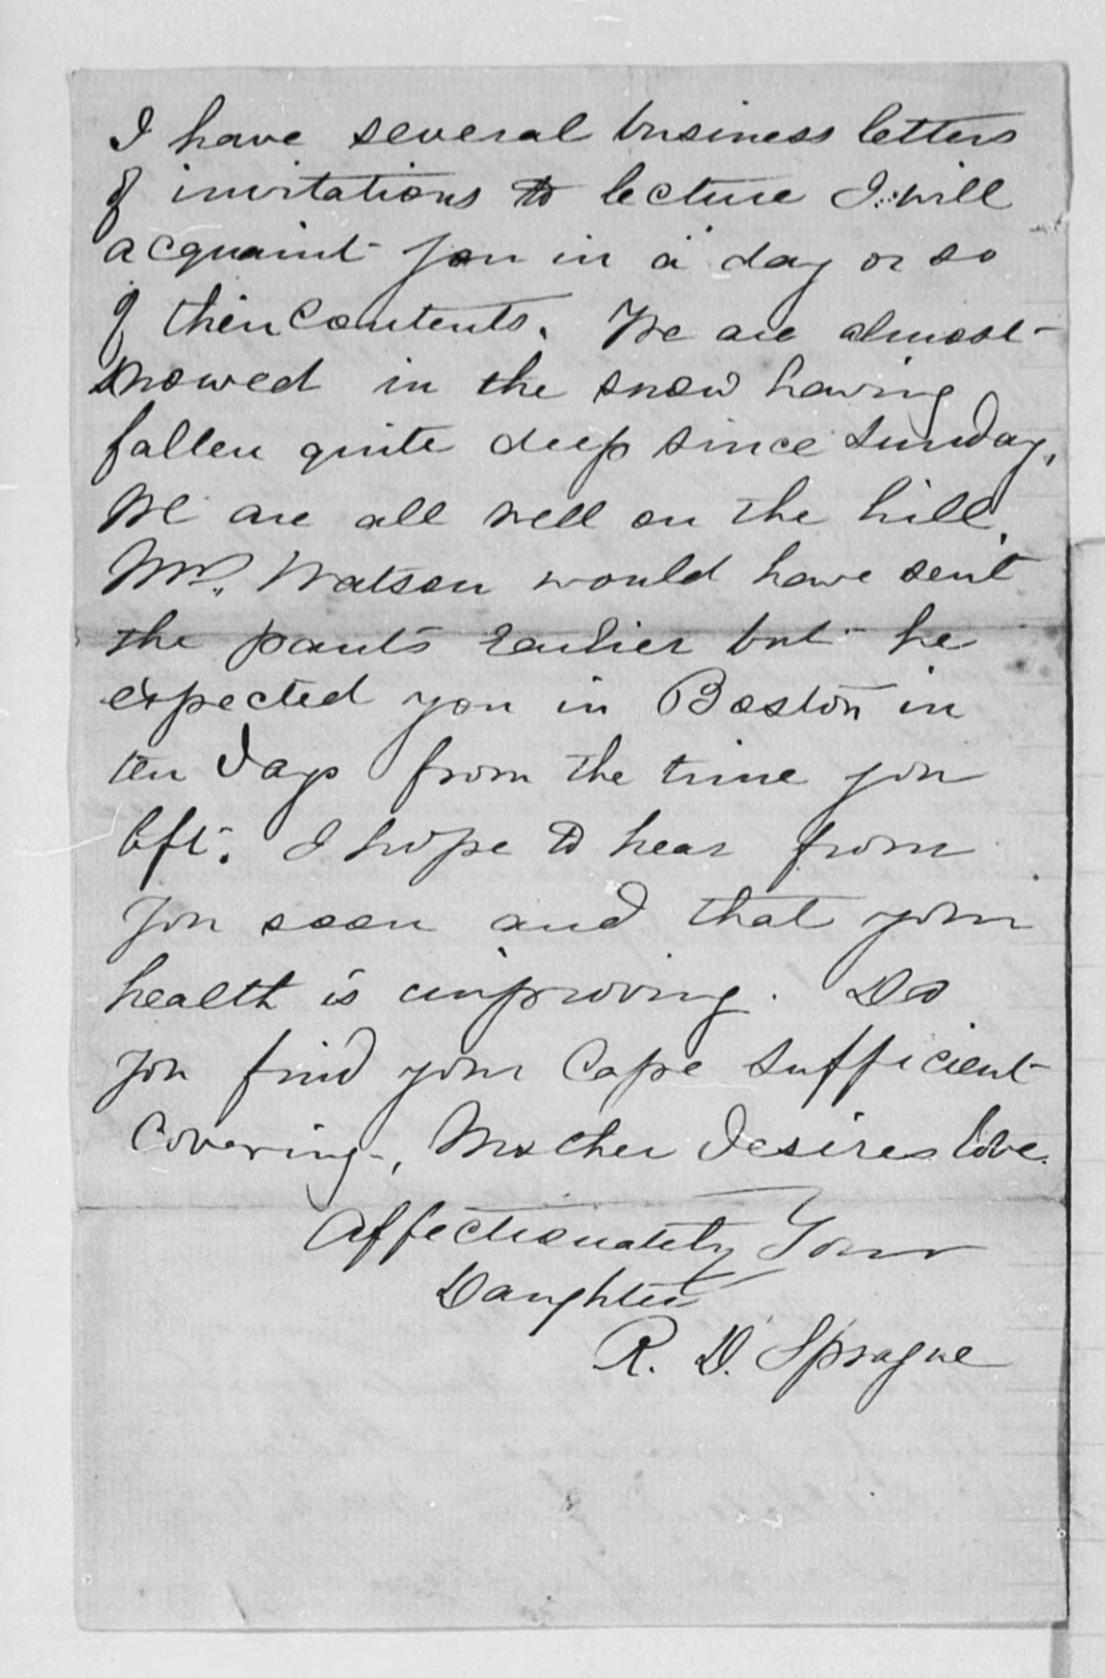 I have several business letters
of invitations to lecture I will
acquaint you in a day or so
of their contents. We are almost
snowed in the snow having
fallen quite deep since Sunday,
We are all well on the hill,
Mr. Watson would have sent
the pants earlier but he
expected you in Boston in
ten days from the time you
left. I hope to hear from
you soon and that your
health is improving. Do
you find your Cape sufficient
Covering, Mother desires love.
Affectionately Your
Daughter
R. D. Sprague